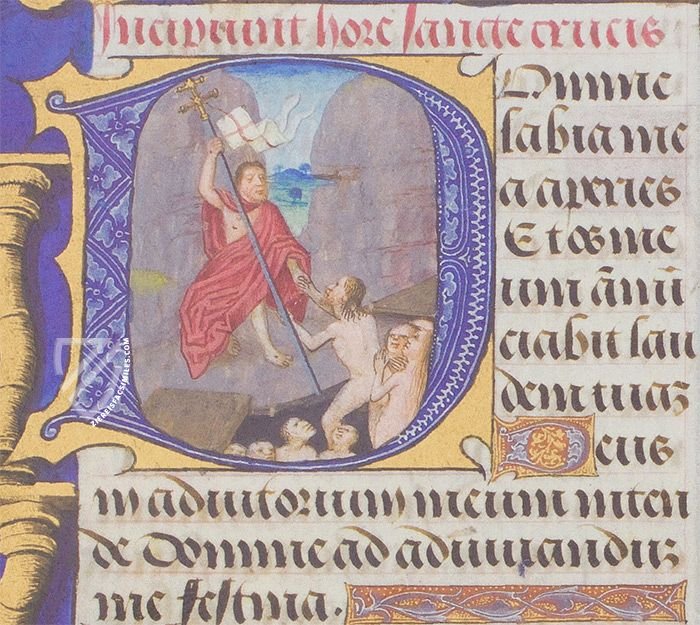 Incipiunt hore sancte crucis
DOmine
labia me
a aperies
Et os me
um ānū
ciabit lau
dem tuaʒ
Deus
in adiutorium meum inten
de Domine ad adiuuanduʒ
me festina.
ZIEREISFACSIMILES.COM